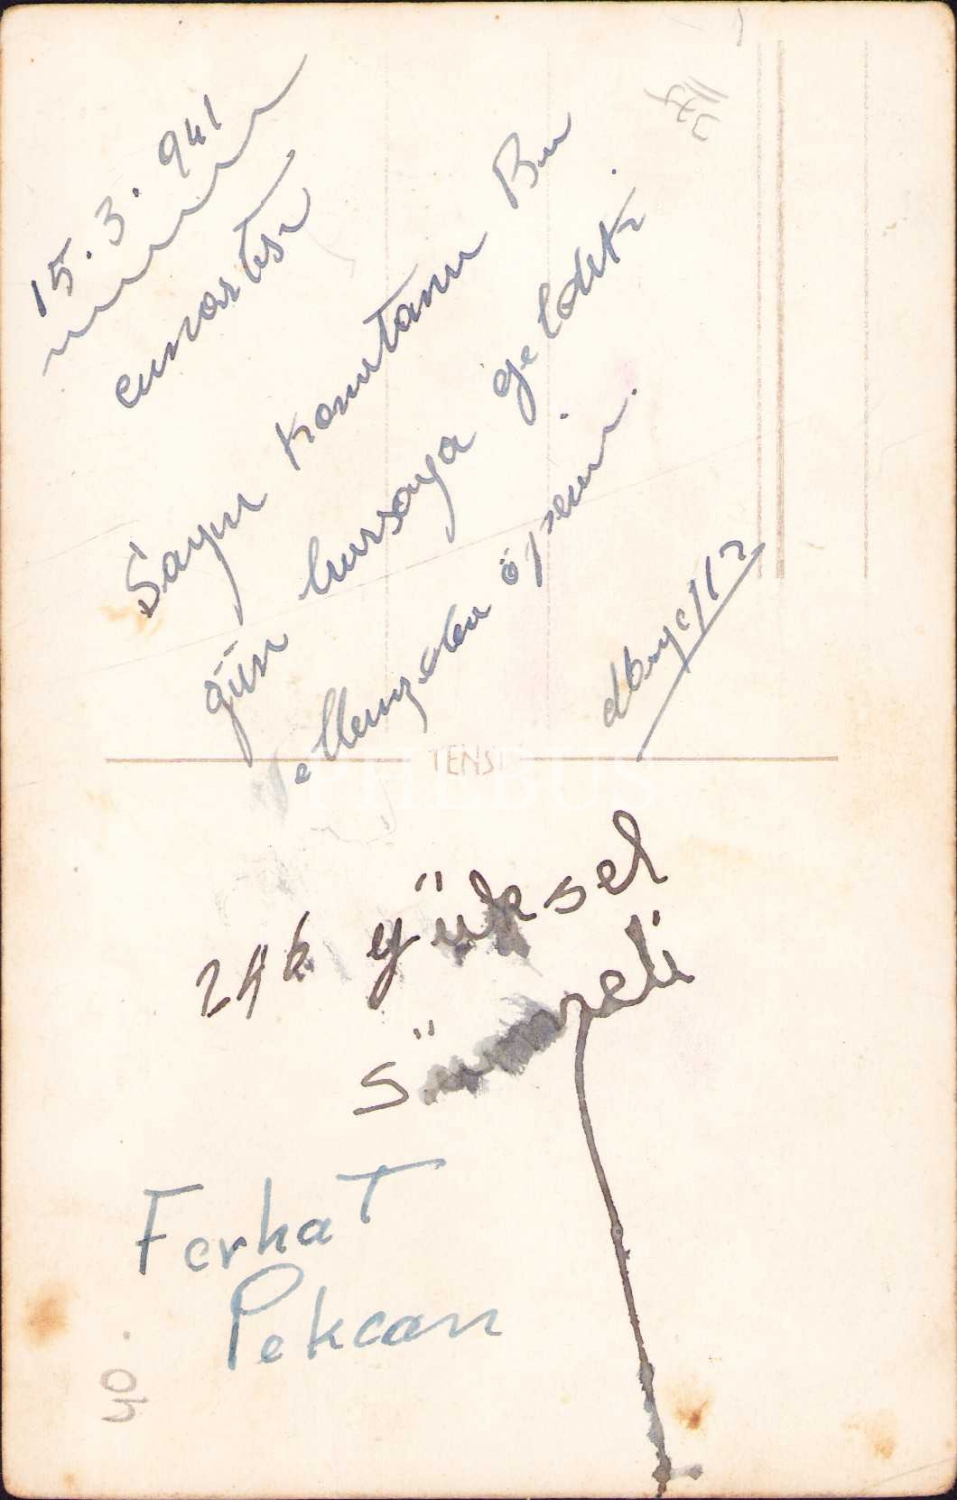 15.3.941
cumartesi
Sayın komutanım Bu
gün bursaya geldik
ellerinizden öperim.
TENSI
PHEBUS
246 yüksel
Ferhat
Pekcan
40